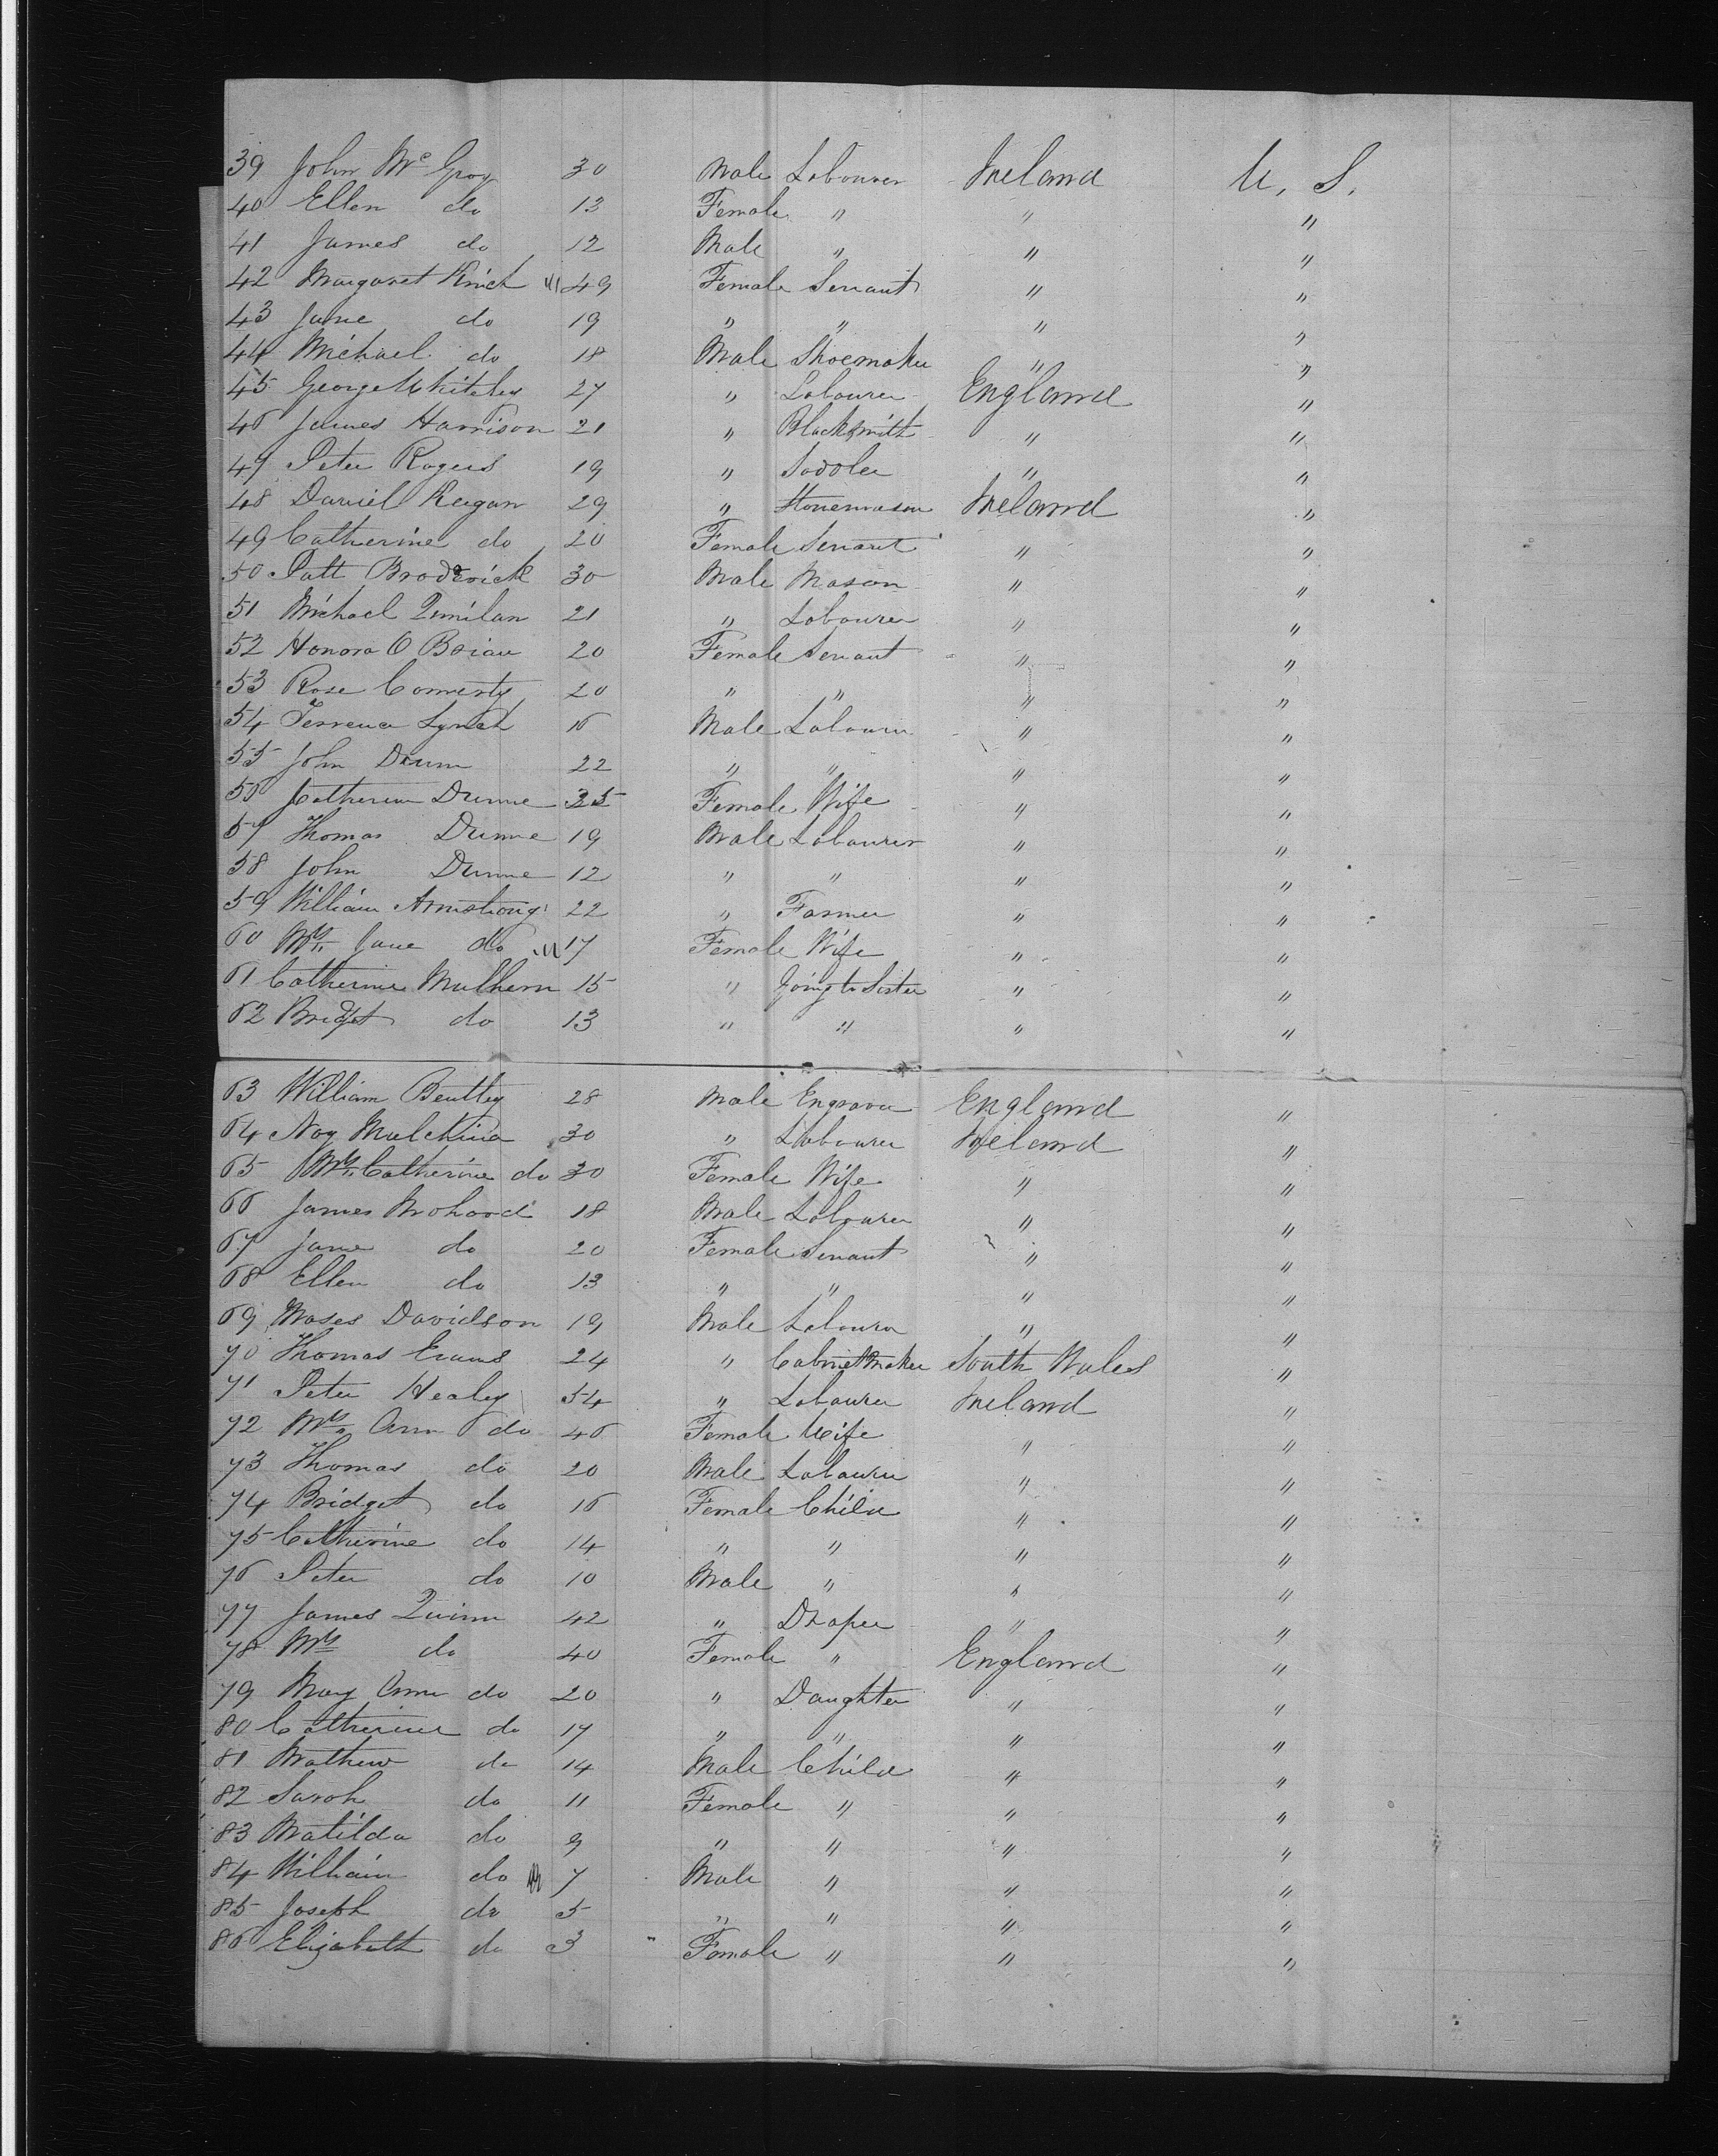 39 John McGroy 30 Male Labourer Ireland U. S.
40 Ellen do 13 Female " " "
41 James do 12 Male " " "
42 Margaret 49 Female Servant " "
43 Jane do 19 " " " "
44 Michael do 18 Male Shoemaker " "
45 George Whiteley 27 " Labourer England "
46 James Harrison 21 " Blacksmith " "
47 Peter Rogers 19 " Sadler " "
48 Daniel Reegan 29 " Stonemason Ireland "
49 Catherine do 20 Female Servant " "
50 Patt Broderick 30 Male Mason " "
51 Michael Quinilan 21 " Labourer " "
52 Honora O Brian 20 Female Servant " "
53 Rose 20 " " " "
54 Terrence Lynch 16 Male Labourer " "
55 John Dunn 22 " " " "
56 Catherine Dunne 35 Female Wife " "
57 Thomas Dunne 19 Male Labourer " "
58 John Dunne 12 " " " "
59 William Armstrong 22 " Farmer " "
60 Mrs Jane do 17 Female Wife " "
61 Catherine Mulhern 15 " Going to Sister " "
62 Bridget do 13 " " " "
63 William Bentley 28 Male Engraver England "
64 30 " Labourer Ireland "
65 Mrs Catherine do 30 Female Wife " "
66 James 18 Male Labourer " "
67 Jane do 20 Female Servant " "
68 Ellen do 13 " " " "
69 Moses Davidson 19 Male Labourer " "
70 Thomas Evans 24 " Cabinetmaker South Wales "
71 Peter Healey 54 " Labourer Ireland "
72 Mrs Ann do 46 Female Wife " "
73 Thomas do 20 Male Labourer " "
74 Bridget do 16 Female Child " "
75 Catherine do 14 " " " "
76 Peter do 10 Male " " "
77 James Quinn 42 " Draper " "
78 Mrs do 40 Female " England "
79 Mary Ann do 20 " Daughter " "
80 Catherine do 17 " " " "
81 Mathew do 14 Male Child " "
82 Sarah do 11 Female " " "
83 Matilda do 9 " " " "
84 William do 7 Male " " "
85 Joseph do 5 " " " "
86 Elizabeth do 3 Female " " "